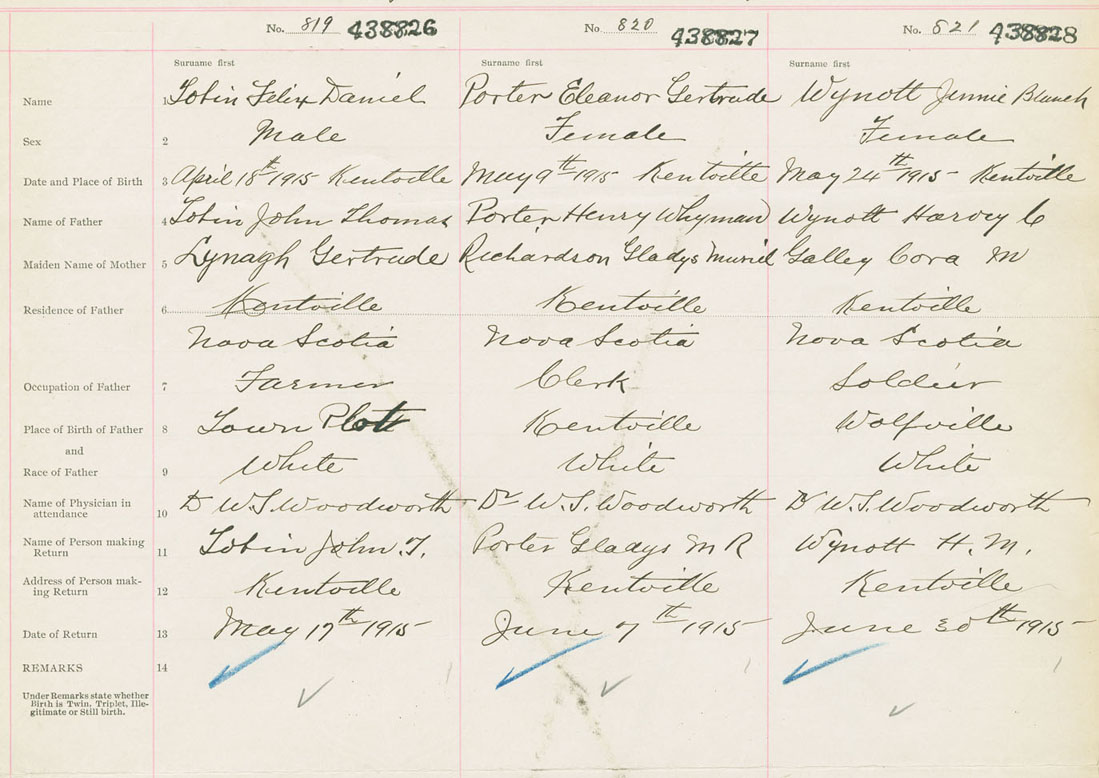 No. 819 438826 No 820 438827 No. 821 438828
Surname first Surname first Surname first
Name 1 Tobin Felix Daniel Porter Eleanor Gertrude Wynott Jennie Blanch
Sex 2 Male Female Female
Date and Place of Birth 3 April 18th 1915 Kentville May 9th 1915 Kentville May 24th 1915 Kentville
Name of Father 4 Tobin John Thomas Porter Henry Whyman Wynott Harvey C
Maiden Name of Mother 5 Lynagh Gertrude Richardson Gladys Muriel Galley Cora M
Residence of Father 6 Kentville Kentville Kentville
Nova Scotia Nova Scotia Nova Scotia
Occupation of Father 7 Farmer Clerk Soldier
Place of Birth of Father 8 Town Plott Kentville Wolfville
and
Race of Father 9 White White White
Name of Physician in
attendance 10 Dr W.S. Woodworth Dr W.S. Woodworth Dr W.S. Woodworth
Name of Person making
Return 11 Tobin John T. Porter Gladys M R Wynott H. M.
Address of Person mak-
ing Return 12 Kentville Kentville Kentville
Date of Return 13 May 17th 1915 June 7th 1915 June 30th 1915
REMARKS 14
Under Remarks state whether
Birth is Twin, Triplet, Ille-
gitimate or Still birth.